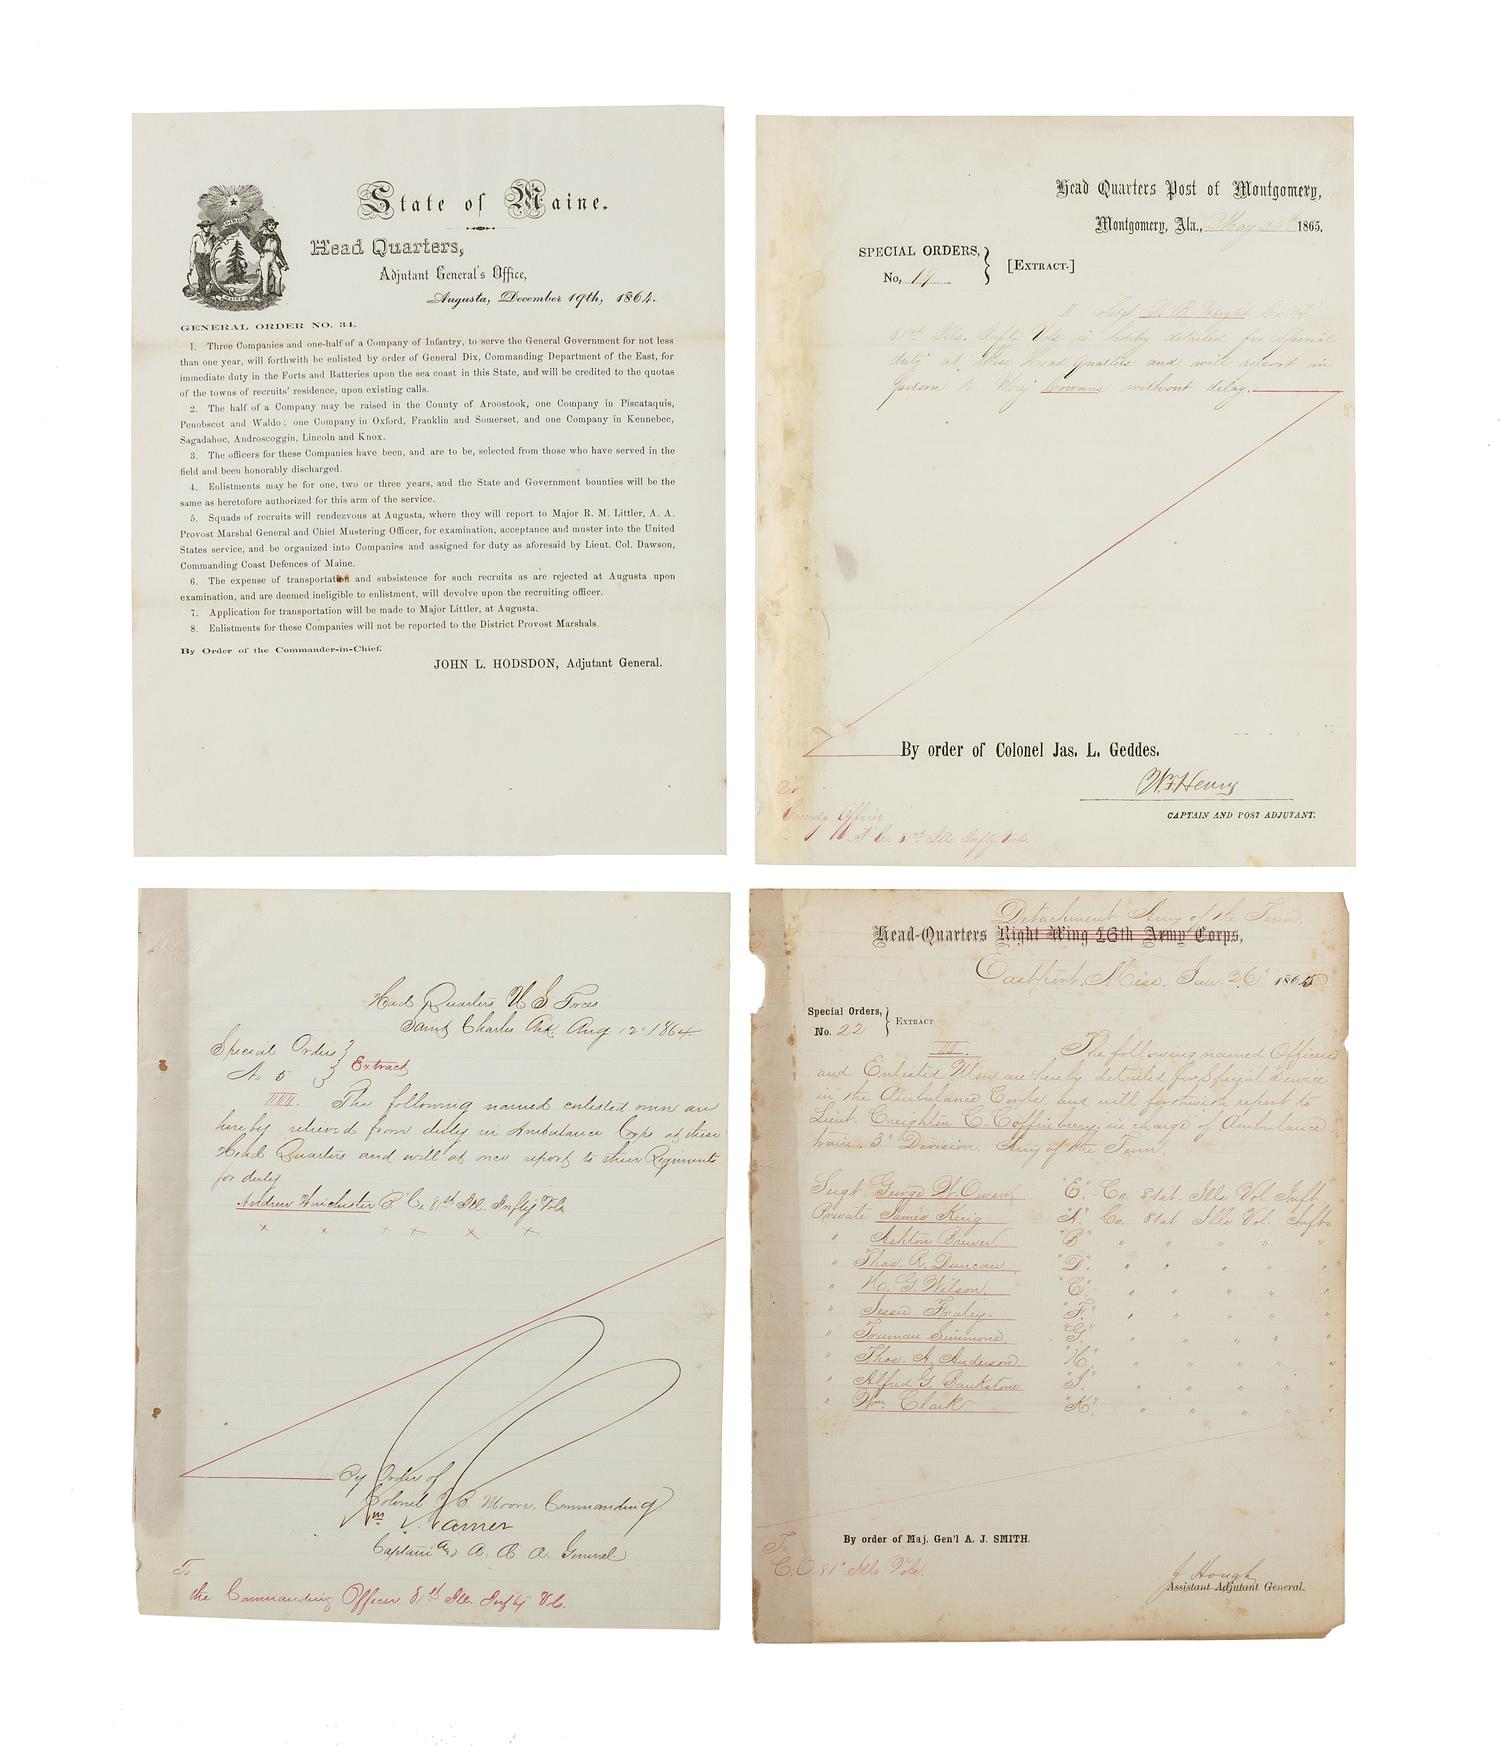 State of Maine.
Head Quarters,
Adjutant General's Office,
Augusta, December 19th, 1864.
GENERAL ORDER NO. 34.
1. Three Companies and one-half of a Company of Infantry, to serve the General Government for not less
than one year, will forthwith be enlisted by order of General Dix, Commanding Department of the East, for
immediate duty in the Forts and Batteries upon the sea coast in this State, and will be credited to the quotas
of the towns of recruits' residence, upon existing calls.
2. The half of a Company may be raised in the County of Aroostook, one Company in Piscataquis,
Penobscot and Waldo; one Company in Oxford, Franklin and Somerset, and one Company in Kennebec,
Sagadahoc, Androscoggin, Lincoln and Knox.
3. The officers for these Companies have been, and are to be, selected from those who have served in the
field and been honorably discharged.
4. Enlistments may be for one, two or three years, and the State and Government bounties will be the
same as heretofore authorized for this arm of the service.
5. Squads of recruits will rendezvous at Augusta, where they will report to Major R. M. Littler, A. A.
Provost Marshal General and Chief Mustering Officer, for examination, acceptance and muster into the United
States service, and be organized into Companies and assigned for duty as aforesaid by Lieut. Col. Dawson,
Commanding Coast Defences of Maine.
6. The expense of transportation and subsistence for such recruits as are rejected at Augusta upon
examination, and are deemed ineligible to enlistment, will devolve upon the recruiting officer.
7. Application for transportation will be made to Major Littler, at Augusta.
8. Enlistments for these Companies will not be reported to the District Provost Marshals.
By Order of the Commander-in-Chief.
JOHN L. HODSDON, Adjutant General.
Head Quarters Post of Montgomery,
Montgomery, Ala., May 1865.
SPECIAL ORDERS,
No, 19 [EXTRACT.]
II Sergt. B. Wright Co
81st Ills. Infty Vols is hereby detailed for Special
duty at these Head Quarters and will report in
person to Maj Cowans without delay.
By order of Colonel Jas. L. Geddes.
W. F. Henry
CAPTAIN AND POST ADJUTANT.
To
Comdg Officer
Co. 81st Ills Infty Vols.
Head Quarters U S Forces
Saint Charles Ark Aug 12" 1864
Special Orders
No 5 Extract
III. The following named enlisted men are
hereby relieved from duty in Ambulance Corps at these
Head Quarters and will at once report to their Regiments
for duty
Andrew Winchester B Co 81st Ill. Infty Vols
x x x x x x
By Order of
Colonel Moore Commanding
Wm Warner
Captain and A. A. A. General
To
the Commanding Officer 81st Ill. Infty Vol.
Detachment Army of the Tenn.
Head-Quarters Right Wing 16th Army Corps,
Eastport, Miss. Jan. 26" 1865
Special Orders,
No. 22 EXTRACT
III. The following named Officers
and Enlisted Men are hereby detailed for Special Service
in the Ambulance Corps, and will forthwith report to
Lieut. Creighton C. Coffinberry, in charge of Ambulance
train, 3" Division. Army of the Tenn.
Sergt George W. Owen, "E" Co. 81st. Ills Vol Inft.
Private James King "A" Co 81st Ills Vol. Inft.
" Ashton Brewer "B" " " " " "
" Thos. R. Duncan "D" " " " " "
" H. G. Wilson. "C" " " " " "
" Jesse Fraley. "F" " " " " "
" Truman Simmons. "G" " " " " "
" Thos. A. Anderson "H" " " " " "
" Alfred G. Bankstone "I" " " " " "
" Wm. Clark. "K" " " " " "
By order of Maj. Gen'l A. J. SMITH.
J Hough
Assistant Adjutant General.
To
C.O. 81" Ills Vols.